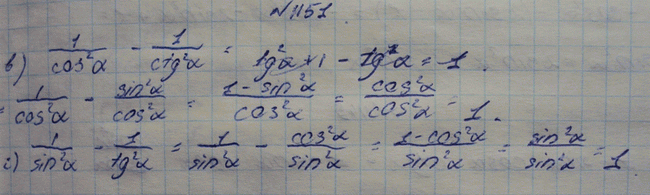 N1151.
в) 1/cos²α - 1/ctg²α = tg²α+1 - tg²α = 1.
= 1/cos²α - sin²α/cos²α = 1-sin²α/cos²α = cos²α/cos²α = 1.
г) 1/sin²α - 1/tg²α = 1/sin²α - cos²α/sin²α = 1-cos²α/sin²α = sin²α/sin²α = 1